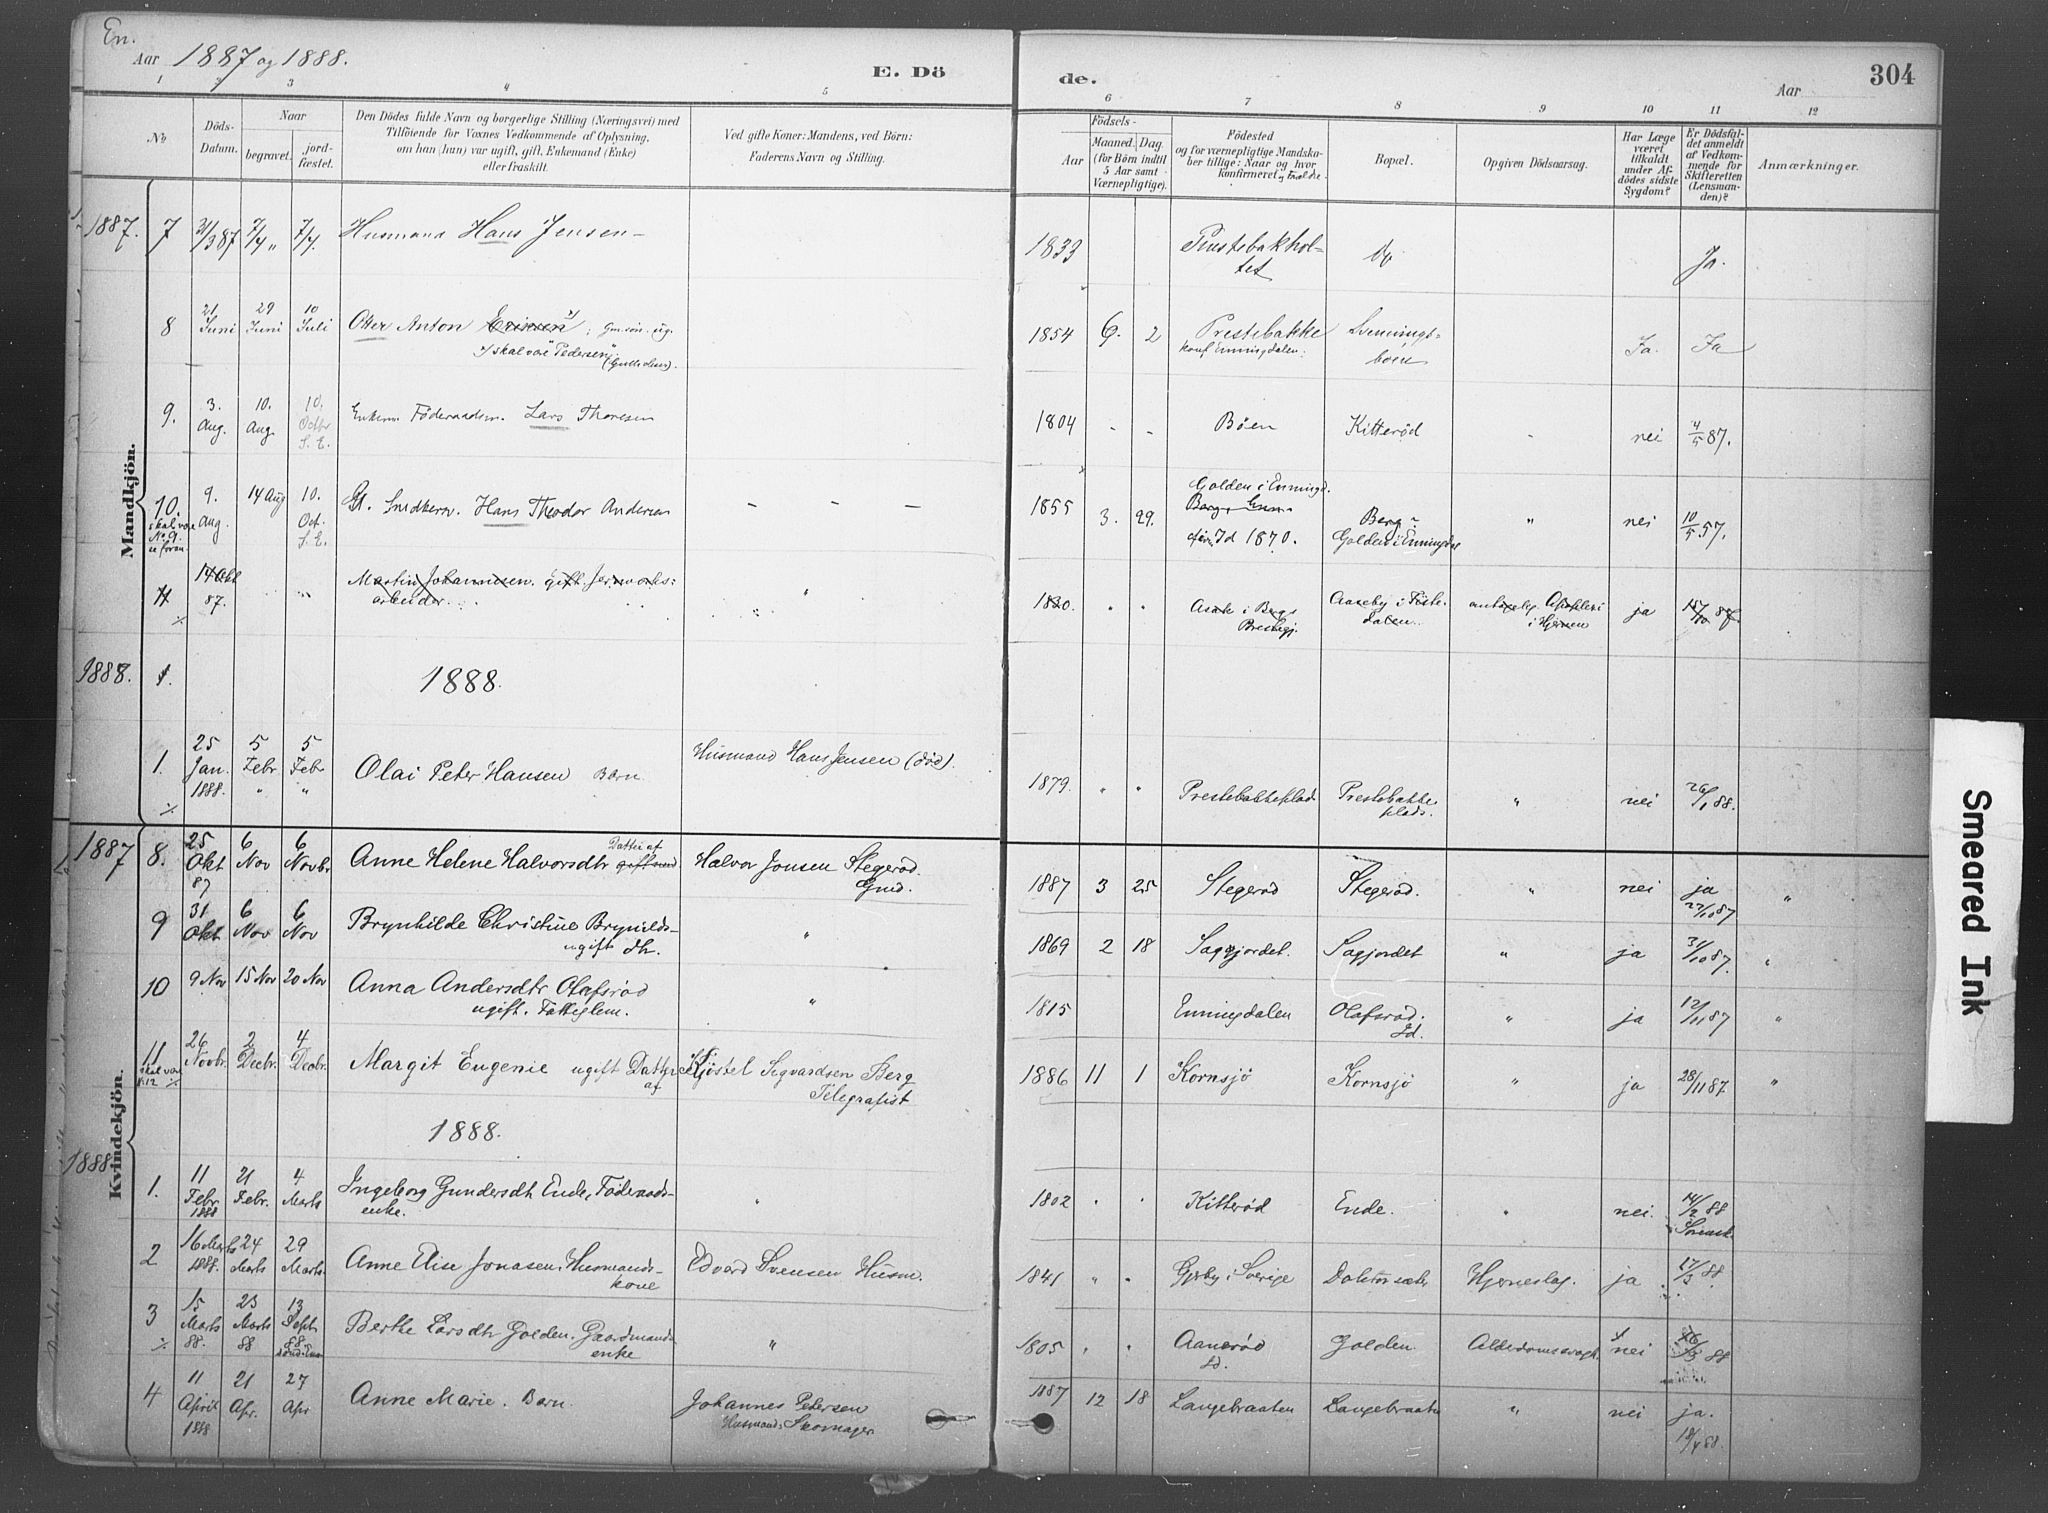 En.
Aar 1887 og 1888.
E. Dö
de.
Aar
304
1 2 3 4 5 6 7 8 9 10 11 12
No
Döds-
Datum.
Naar
begravet.
jord-
fæstet.
Den Dödes fulde Navn og borgerlige Stilling (Næringsvei) med
Tilföiende for Voxnes Vedkommende af Oplysning,
om han (hun) var ugift, gift, Enkemand (Enke)
eller fraskilt.
Ved gifte Koner: Mandens, ved Börn:
Faderens Navn og Stilling.
Födsels-
Aar
Maaned.
Dag.
(for Börn indtil
5 Aar samt
Værnepligtige).
Födested
og for værnepligtige Mandska-
ber tillige: Naar og hvor
konfirmeret
Bopæl.
Opgiven Dödsaarsag.
Har Læge
været
tilkaldt
under Af-
dödes sidste
Sygdom?
Er Dödsfal-
det anmeldt
af Vedkom-
mende for
Skifteretten
(Lensman-
den)?
Anmærkninger.
Mandkjön.
1887. 7 31/3 87 7/4 " 7/4. Husmand Hans Jensen 1833 Prestebakhol-
tet Do Ja.
8 21 Juni 29 Juni 10 Juli Otter Anton Eriksen; Gm. sön. ug.
skal være "Pedersen"
1854 6. 2 Prestebakke
konf Enningdalen. Svennings-
böen Ja. Ja
9. 3. Aug. 10. Aug. 10. Octbr S. E. Enkem. Föderaadsm. Lars Thoresen
1804 - - Böen Kitteröd - nei 4/5 87.
10. skal være No 9. 9. Aug. 14 Aug 10. Oct. S. E. Gt. Snidkersv. Hans Theodor Andersen - - -
1855 3. 29. Golden i Enningd.
Berg
Id 1870. Berg
Golden i Enningdal " nei 10/5 57.
11 14 Okt 87. Martin Johannesen. gift. Jernverks-
arbeider. "
1830. " " Asak i Bergs
Prestegj. Aaseby i Tiste-
dalen. Apoplexi
i Hjernen ja 15/10 87
1888. 1. 1888.
1. 25 Jan. 1888. 5 Febr " 5 Febr " Olai Peter Hansen Barn Husmand Hans Jensen (död).
1879. " " Prestebakkeplads Prestebakke
plads. " nei 26/1 88.
Kvindekjön.
1887 8. 25 Okt 87 6 Nov 6 Novbr Anne Helene Halvorsdtr Datter af Halvor Jonsen Stegeröd
Gmd.
1887 3 25 Stegeröd Stegeröd. " nei ja
27/10 87 "
9 31 Okt 6 Nov 6 Nov Brynhilde Christine Brynilds-
ugift dtr. "
1869 2 18 Saggjordet. Sagjordet " ja 31/10 87. "
10 9 Nov 15 Nov 20 Nov Anna Andersdtr Olafsröd
ugift. Fattiglem. "
1815 Enningdalen Olafsröd.
Id. " ja 12/11 87 "
11 skal være N. 12 26 Novbr. 2 Decbr. 4 Decbr. Margit Eugenie ugift Datter
af Kjöstel Sigvardsen Berg
Telegrafist
1886 11 1 Kornsjö Kornsjö " ja 28/11 87 "
1888.
1888 1. 11 Febr 1888 21 Febr. 4 Marts Ingeborg Gundersdt Ende, Föderaads-
enke. "
1802 " " Kitteröd Ende. " nei. 14/2 88
2 16 Marts 1888. 24 Marts 29 Marts. Anne Elise Jonasen, Husmands-
kone Edvard Svensen Husm.
1841 " " i Sverige Hjerneslag. ja 17/3 88
3 15 Marts 88. 23 Marts 88 13 Sept 88 Berthe Larsdtr Golden. Gaardmands
enke "
1805 " " Aaneröd
Id. Golden. nei 16/3 88
4 11 April 1888 21 Apr. 27 Apr Anne Marie. Barn. Johannes Petersen
Husmand, Skomager
1887 12 18 Langebraaten Langebraaten " nei ja.
18/4 88.
Smeared Ink